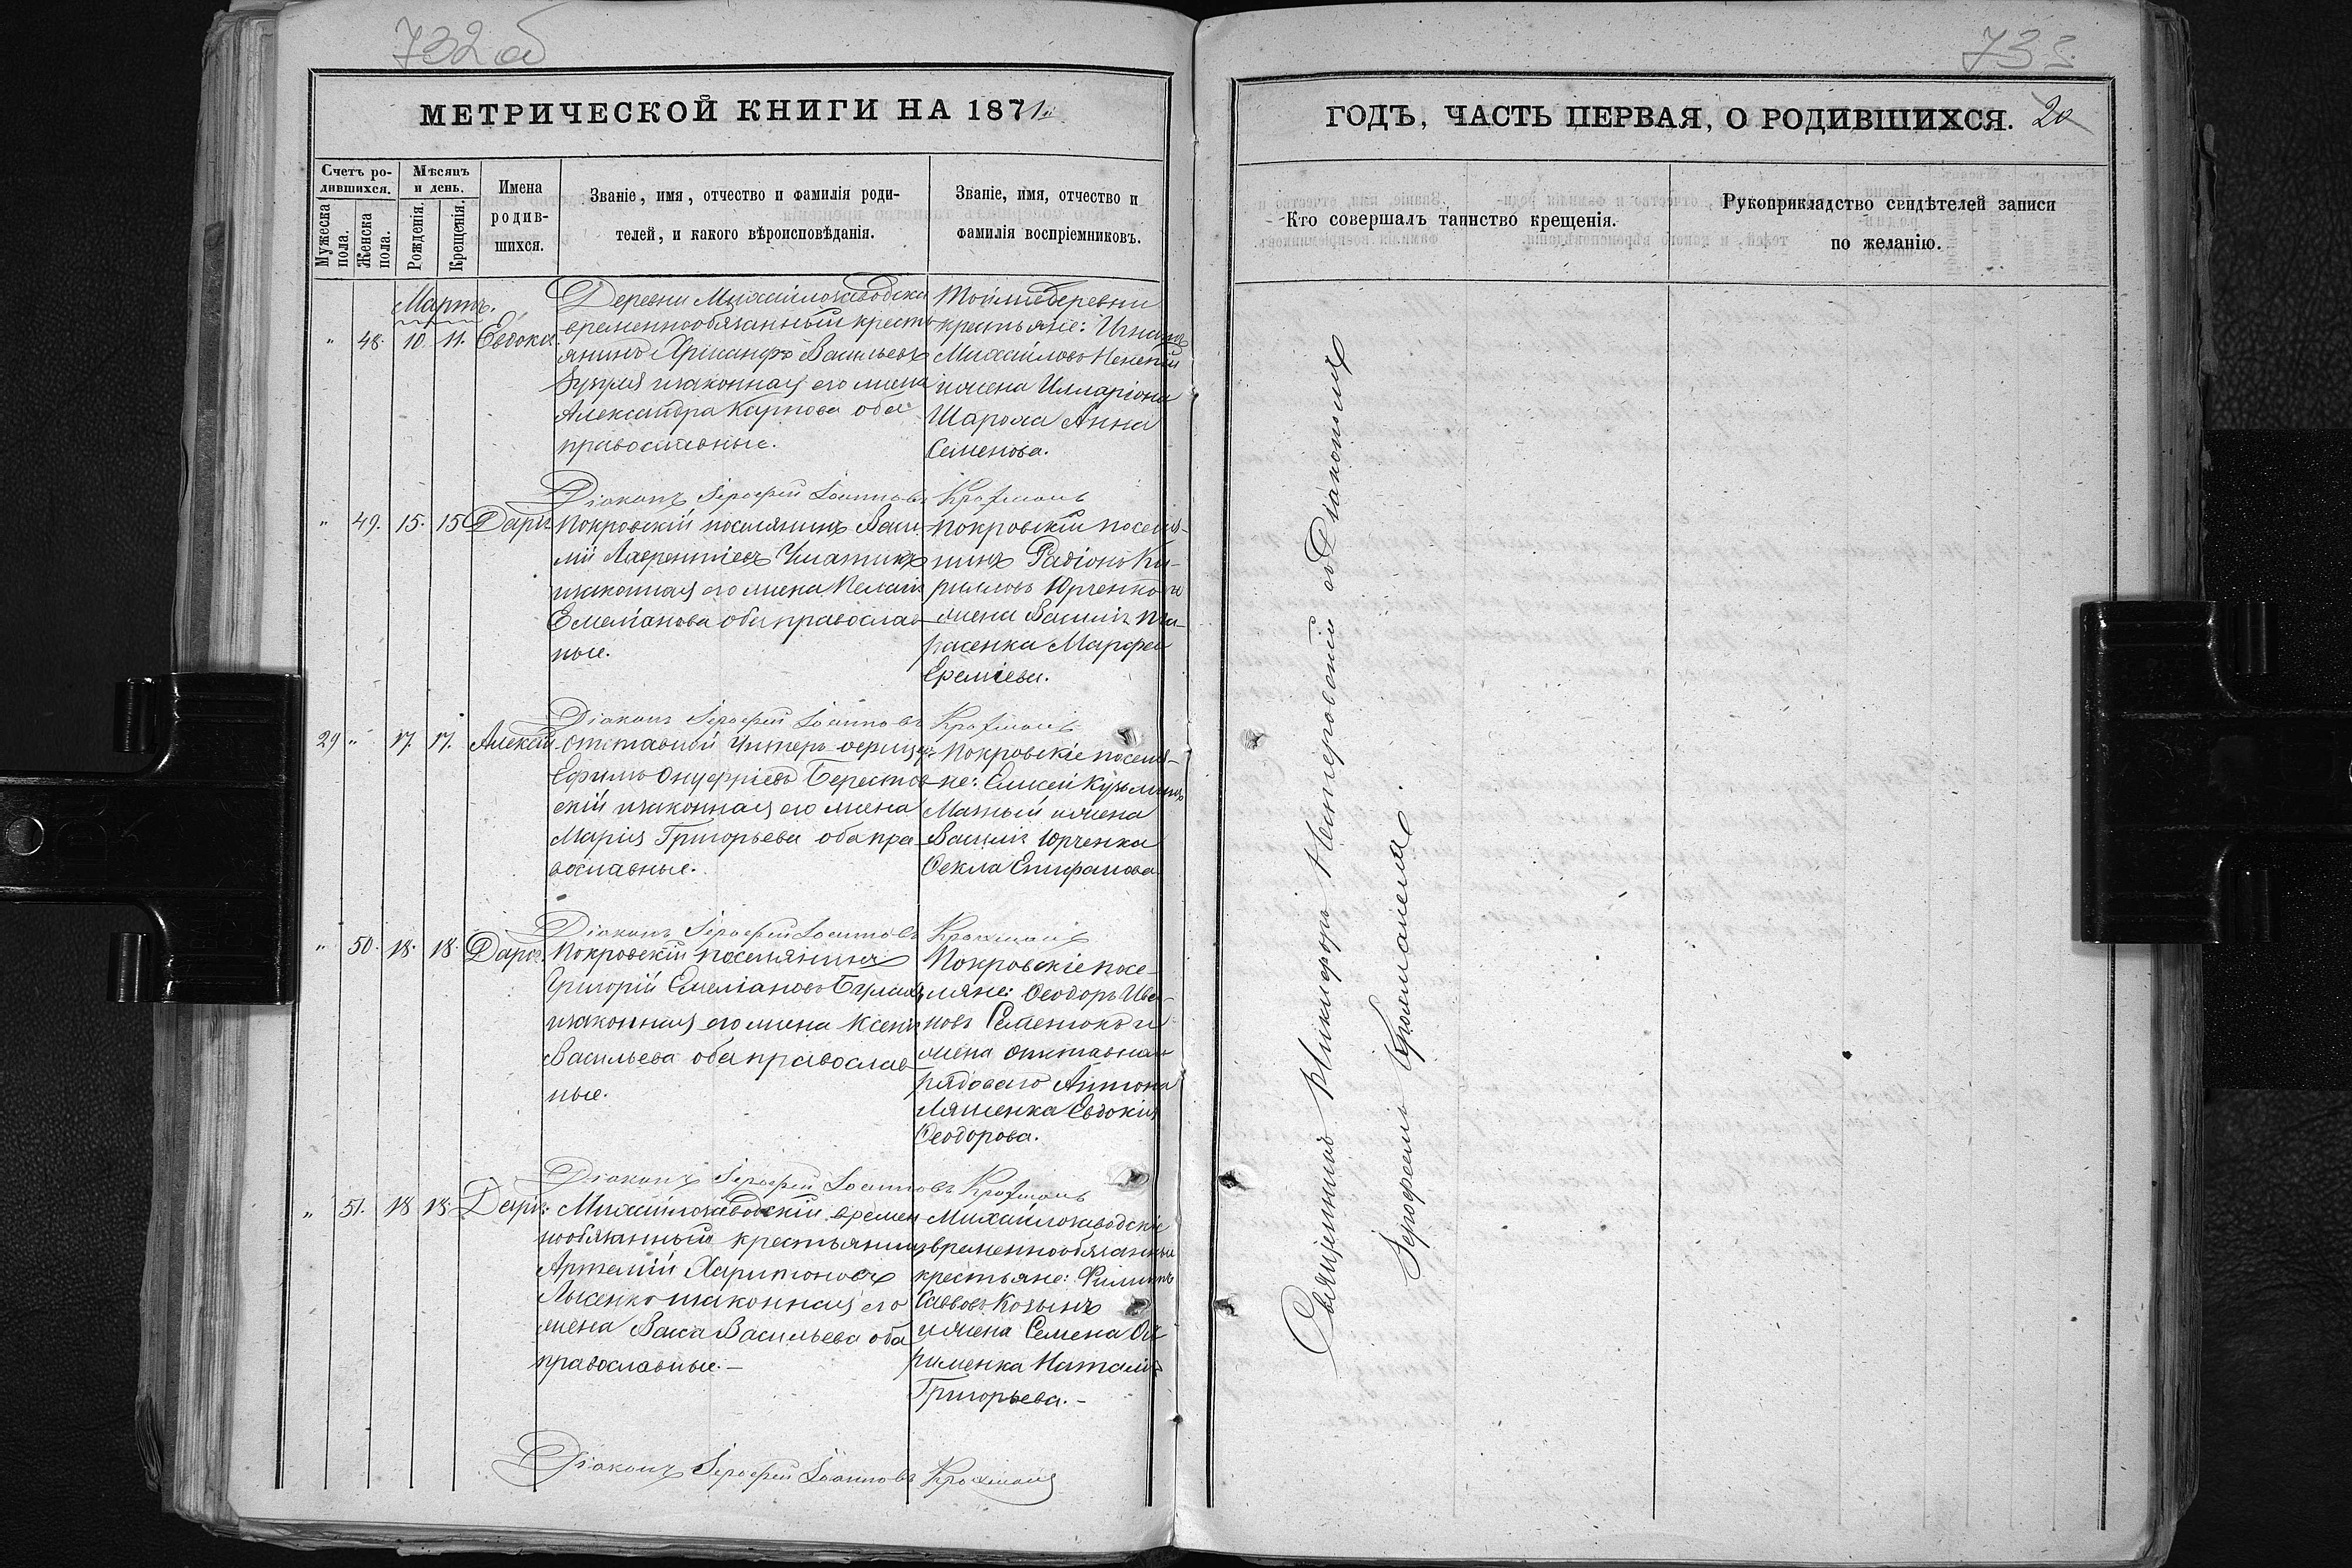 732 об
МЕТРИЧЕСКОЙ КНИГИ НА 1871й
Счетъ родившихся.
Мѣсяцъ и день.
Имена родившихся.
Званіе, имя, отчество и фамилія родителей, и какого вѣроисповѣданія.
Званіе, имя, отчество и фамилія воспріемниковъ.
Мужеска пола.
Женска пола.
Рожденія.
Крещенія.
Мартъ.
" 48. 10. 11. Евдокія
Деревни Михайлозаводска
временнообязанный кресть
янинъ Хрисанфъ Васильевъ
и законная его жена
Александра Карпова оба
православные.
Той же деревни
крестьяне: Игнатъ
Михайловъ
и жена Илларіона
Шарома Анна
Семенова.
Діаконъ Іерофей Іоанновъ Крохмаль
" 49. 15. 15 Дарія
Покровскій поселянинъ Васи-
лій Лаврентіевъ
и законная его жена Пелагія
Емеліанова оба православ-
ные.
Покровскій поселя-
нинъ Радіонъ Ки-
рилловъ Юрченко и
жена Василія Та-
расенка Марфа
Ереміева.
Діаконъ Іерофей Іоанновъ Крохмаль
29 " 17. 17. Алексій
Отставной Унтеръ-офицеръ
Ефимъ Онуфріевъ Берестов-
скій и законная его жена
Марія Григорьева оба пра-
вославные.
Покровскіе поселя-
не: Елисей Кузьминъ
Мазный и жена
Василія Юрченка
Ѳекла Епифанова
Діаконъ Іерофей Іоанновъ Крохмаль
" 50. 18. 18. Дарія.
Покровскій поселянинъ
Григорій Емеліановъ
и законная его жена Ксенія
Васильева оба православ-
ные.
Покровскіе посе-
ляне: Ѳеодоръ Ива-
новъ Семенокъ и
жена отставнаго
рядоваго Антона
Ляшенка Евдокія
Ѳеодорова.
Діаконъ Іерофей Іоанновъ Крохмаль
" 51. 18 18. Дарія.
Михайлозаводскій времен
нообязанный крестьянинъ
Артемій Харитоновъ
Лысенко и законная его
жена Васса Васильева оба
православные.—
Михайлозаводскіе
временнообязанные
крестьяне: Филиппъ
Савовъ Козынъ
и жена Семена Ох
рименка Наталія
Григорьева.—
Діаконъ Іерофей Іоанновъ Крохмаль
733
ГОДЪ, ЧАСТЬ ПЕРВАЯ, О РОДИВШИХСЯ.
20
Кто совершалъ таинство крещенія.
Рукоприкладство свидѣтелей записи по желанію.
Священникъ Никифоръ Нестеровскій съ Діакономъ
Іерофеемъ Крохмалемъ.